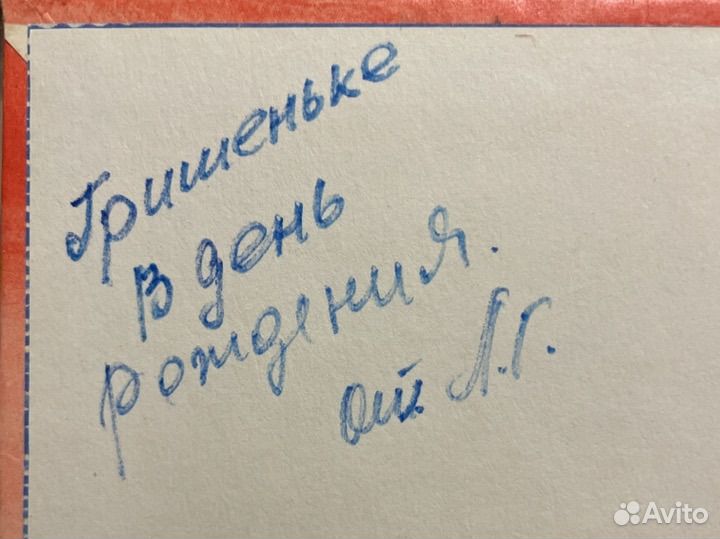 Гришеньке
в день
рождения.
от. Л.Г.
Avito